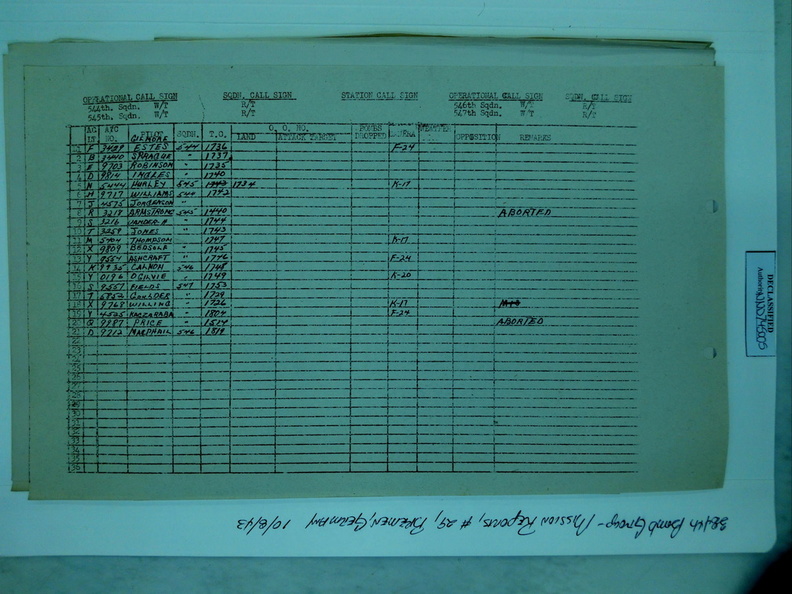 OPERATIONAL CALL SIGN SQDN. CALL SIGN STATION CALL SIGN OPERATIONAL CALL SIGN SQDN. CALL SIGN
544th. Sqdn. W/T R/T 546th Sqdn. W/T R/T
545th. Sqdn. W/T R/T 547th Sqdn. W/T R/T
A/C A/C PILOT SQDN. T.O. O. O. NO. BOMBS CAMERA
LT. NO. GILMORE LAND ATTACK TARGET DROPPED OPPOSITION REMARKS
1 F ESTES 544 1736 F-24
2 B 3440 SPRAGUE " 1737
3 E 9703 ROBINSON " 1735
4 D 9814 INGLES " 1740
5 N 5444 HURLEY 545 1734 K-17
6 H 9717 WILLIAMS 544 1742
7 J 4575 JORGENSON "
8 R 3218 ARMSTRONG 545 1440 ABORTED
9 S 3216 " 1744
10 T 3259 JONES " 1743
11 M THOMPSON 1747 K-17
12 X 9809 "
13 Y ASHCRAFT " 1746 F-24
14 K CANNON 546 1748
15 Y 0196 OGILVIE " 1749 K-20
16 S 9557 FIELDS 547 1753
17 T " 1729
18 X 9768 WILLING " 1726 K-17
19 Y 4525 " 1804 F-24
20 Q 9987 PRICE " 1514 ABORTED
21 D 7212 MACPHAIL 546 1819
22
23
24
25
26
27
28
29
30
31
32
33
34
35
36
DECLASSIFIED
384th Bomb Group - Mission Reports, # 29, BREMEN, GERMANY 10/8/43